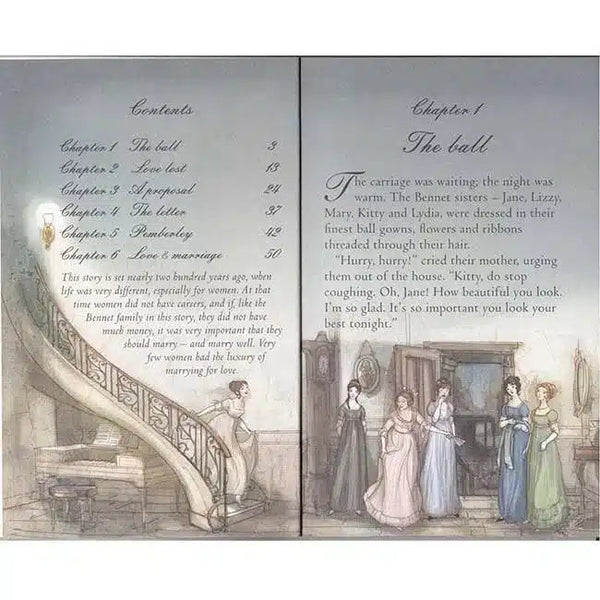 Contents
Chapter 1 The ball 3
Chapter 2 Love lost 13
Chapter 3 A proposal 24
Chapter 4 The letter 37
Chapter 5 Pemberley 42
Chapter 6 Love & marriage 50
This story is set nearly two hundred years ago, when
life was very different, especially for women. At that
time women did not have careers, and if, like the
Bennet family in this story, they did not have
much money, it was very important that they
should marry – and marry well. Very
few women had the luxury of
marrying for love.
Chapter 1
The ball
The carriage was waiting; the night was
warm. The Bennet sisters – Jane, Lizzy,
Mary, Kitty and Lydia, were dressed in their
finest ball gowns, flowers and ribbons
threaded through their hair.
"Hurry, hurry!" cried their mother, urging
them out of the house. "Kitty, do stop
coughing. Oh, Jane! How beautiful you look.
I'm so glad. It's so important you look your
best tonight."